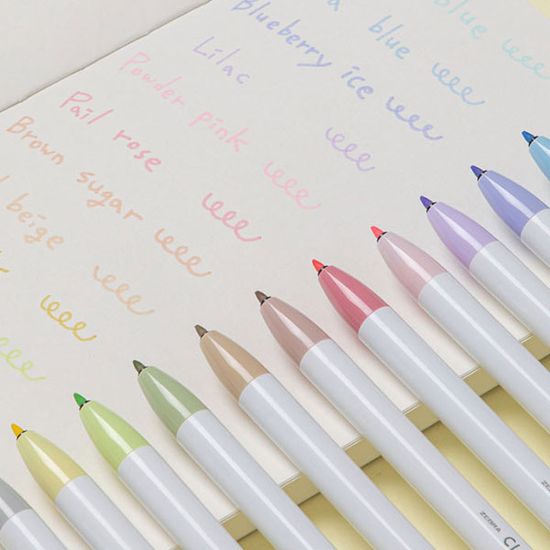 blue
blue
Blueberry ice
Lilac
Powder pink
Pail rose
Brown sugar
beige
ZEBRA